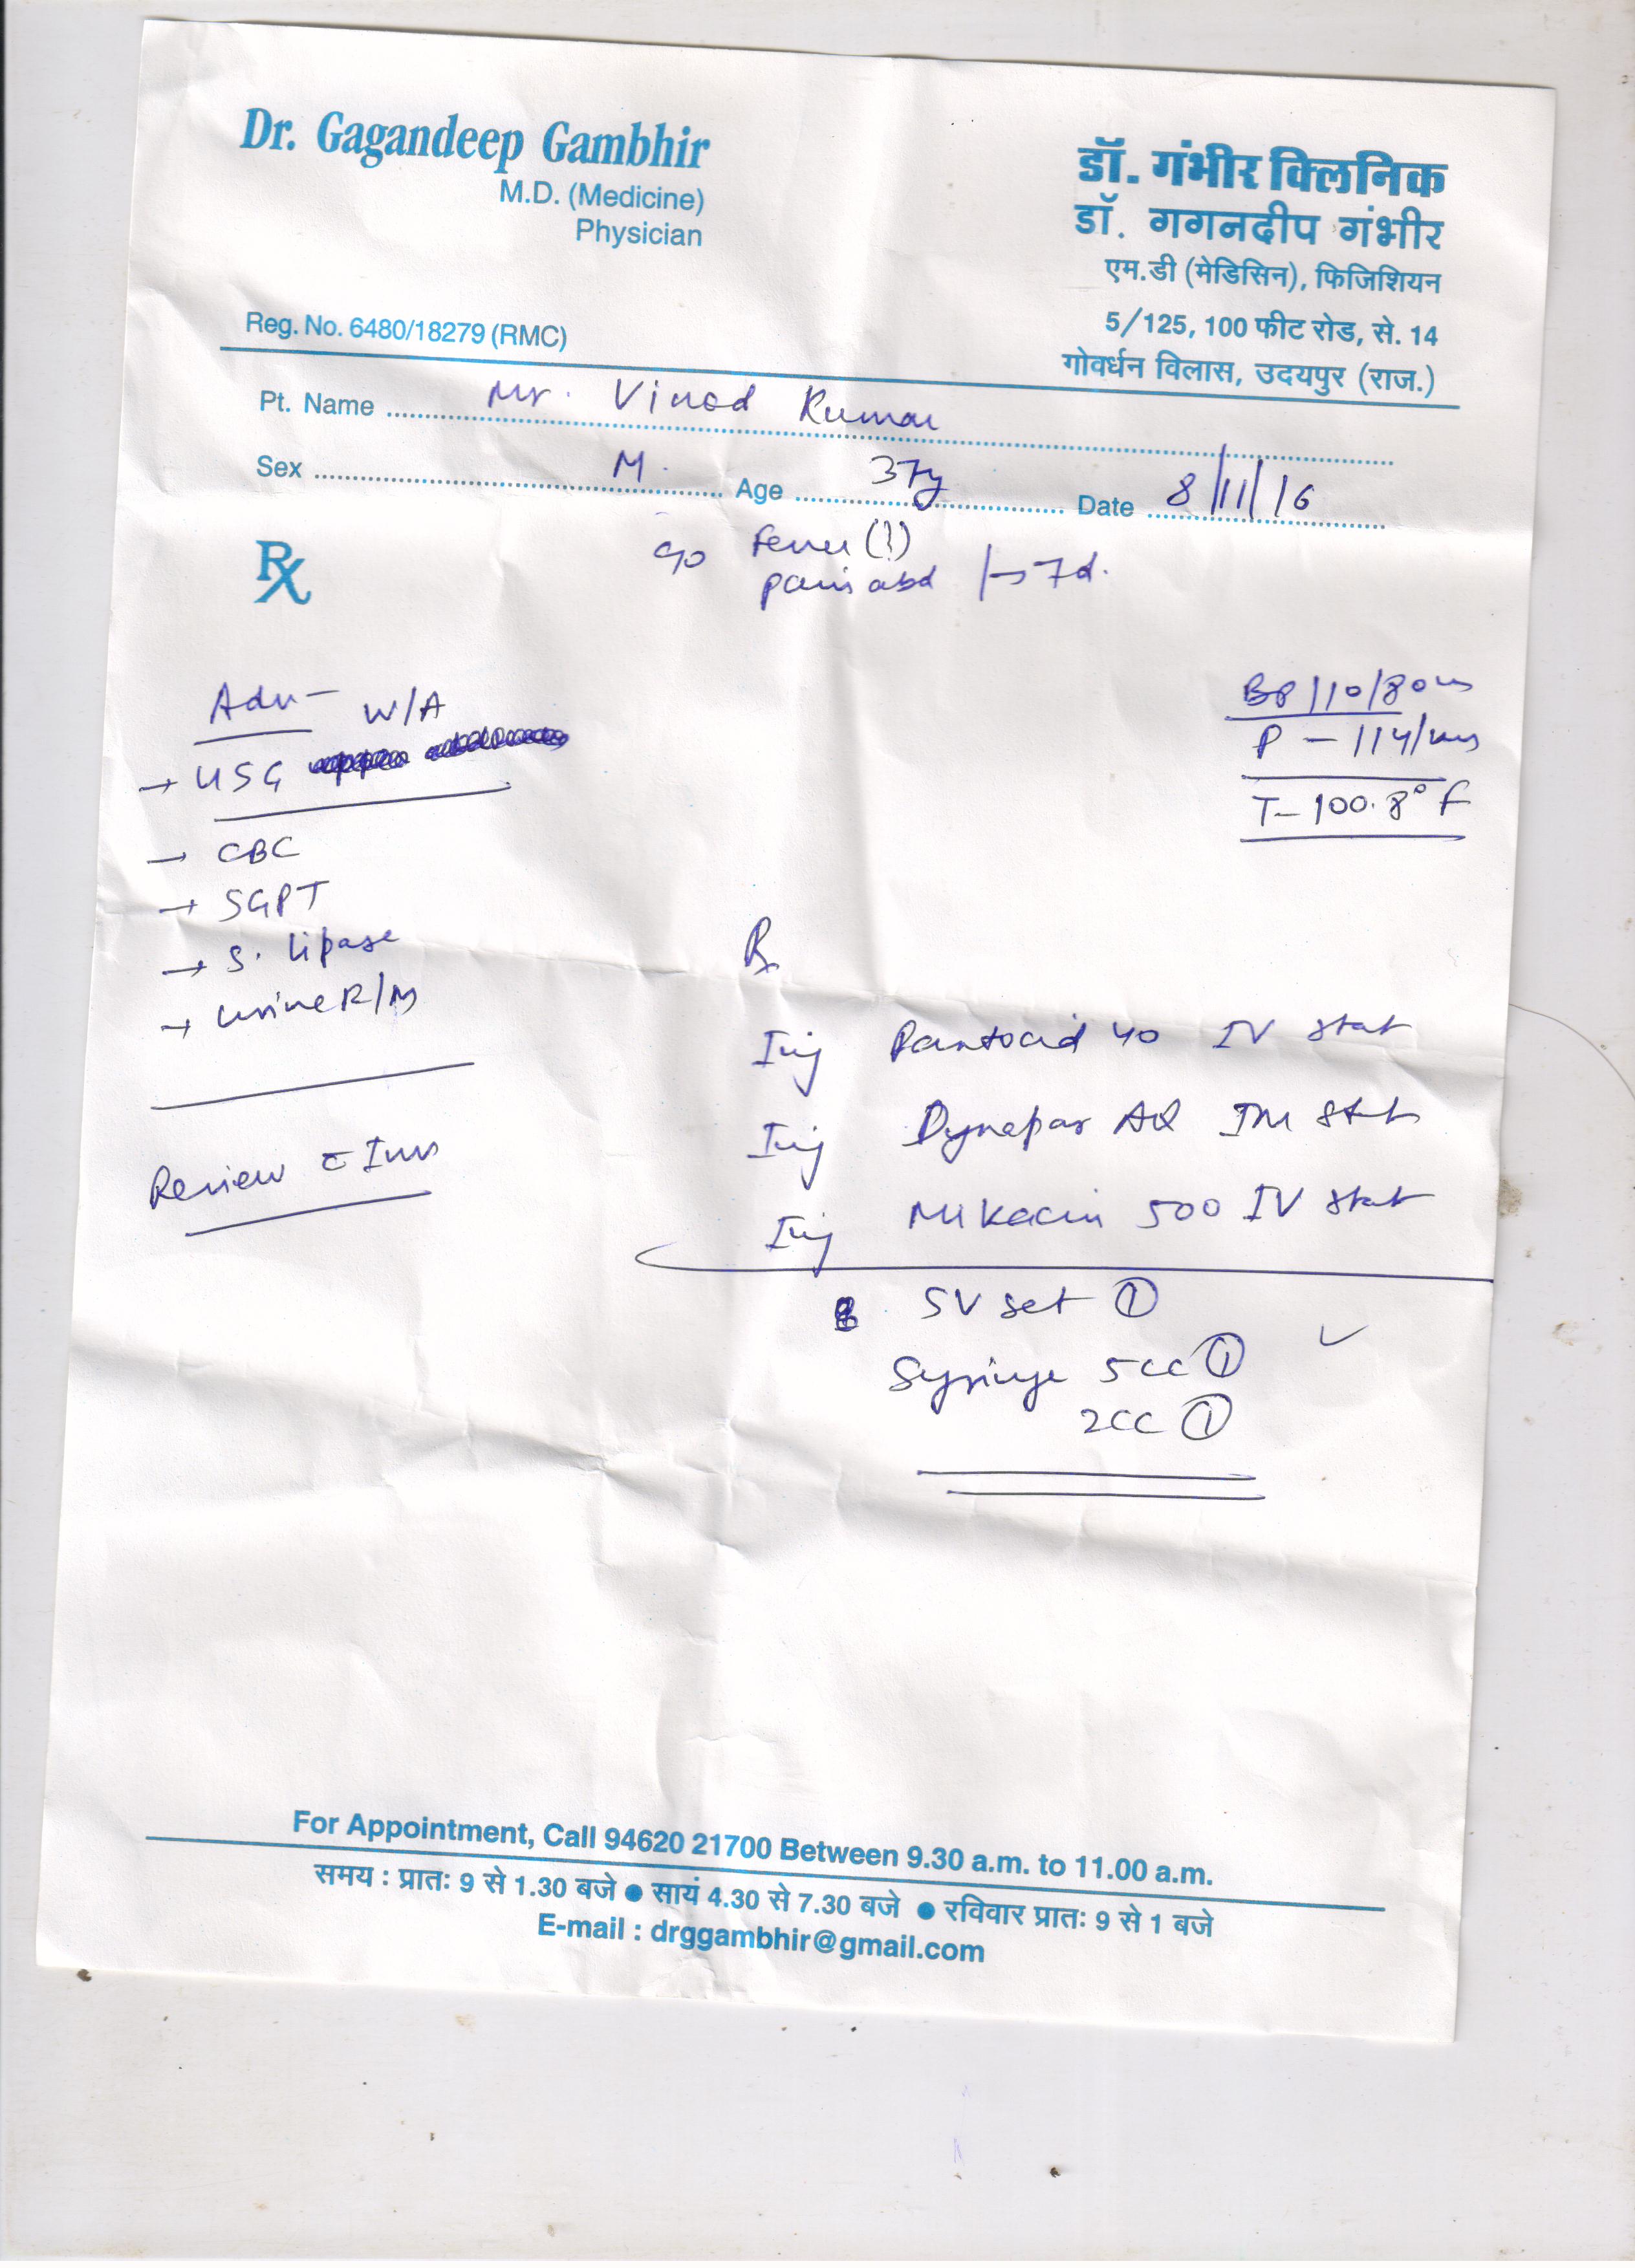 Dr. Gagandeep Gambhir
M.D. (Medicine)
Physician
Reg. No. 6480/18279 (RMC)
डॉ. गंभीर क्लिनिक
डॉ. गगनदीप गंभीर
एम.डी (मेडिसिन), फिजिशियन
5/125, 100 फीट रोड, से. 14
गोवर्धन विलास, उदयपुर (राज.)
Pt. Name Mr. Vinod Kumar
Sex M. Age 37y Date 8/11/16
Rx
c/o fever
pain abd 7d.
BP 110/80
P - 114/
T- 100.8° F
Adv-
W/A
→ USG
→ CBC
→ SGPT
→ S. lipase
→ Urine R/M
Review c Inv
Rx
Inj Pantocid 40 IV stat
Inj Dynapar AQ IM stat
Inj Mikacin 500 IV stat
SV set ①
Syringe 5cc ①
2cc ①
For Appointment, Call 94620 21700 Between 9.30 a.m. to 11.00 a.m.
समय : प्रातः 9 से 1.30 बजे ● सायं 4.30 से 7.30 बजे ● रविवार प्रातः 9 से 1 बजे
E-mail : drggambhir@gmail.com